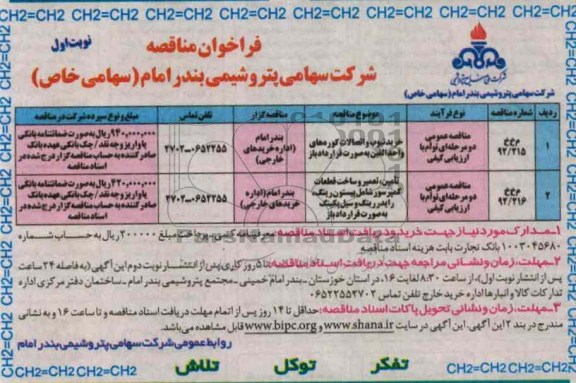 CH2=CH2 CH2=CH2 CH2=CH2 CH2=CH2 CH2=CH2 CH2=CH2 CH2=CH2 CH2=CH2
نوبت اول
فراخوان مناقصه
شرکت سهامی پتروشیمی بندر امام (سهامی خاص)
شرکت سهامی پتروشیمی بندر امام (سهامی خاص)
ردیف شماره مناقصه نوع فرآیند موضوع مناقصه مناقصه گزار تلفن تماس مبلغ و نوع سپرده شرکت در مناقصه
۱ م ع ع ۹۲/۲۱۵ مناقصه عمومی دو مرحله ای توأم با ارزیابی کیفی خرید تیوب و اتصالات کوره های واحد الفین به صورت قرارداد باز بندر امام (اداره خریدهای خارجی) ۰۶۵۲۲۵۵-۲۷۰۲ ۹۴۰,۰۰۰,۰۰۰ ریال به صورت ضمانتنامه بانکی یا واریز وجه نقد / چک بانکی عهده بانک صادر کننده به حساب مناقصه گزار درج شده در اسناد مناقصه
۲ م ع ع ۹۲/۲۱۶ مناقصه عمومی دو مرحله ای توأم با ارزیابی کیفی تأمین، تعمیر و ساخت قطعات کمپرسور شامل پیستون، رینگ، رایدر رینگ و سیل پکینگ به صورت قرارداد باز بندر امام (اداره خریدهای خارجی) ۰۶۵۲۲۵۵-۲۷۰۲ ۴۲۰,۰۰۰,۰۰۰ ریال به صورت ضمانتنامه بانکی یا واریز وجه نقد / چک بانکی عهده بانک صادر کننده به حساب مناقصه گزار درج شده در اسناد مناقصه
۱ـ مدارک مورد نیاز جهت خرید و دریافت اسناد مناقصه: معرفینامه کتبی و پرداخت مبلغ ۲۰۰۰۰۰ ریال به حساب شماره
۱۰۰۳۰۴۵۶۸۰ بانک تجارت بابت هزینه اسناد مناقصه
۲ـ مهلت، زمان و نشانی مراجعه جهت دریافت اسناد مناقصه: تا ۵ روز کاری پس از انتشار نوبت دوم این آگهی (به فاصله ۲۴ ساعت
پس از انتشار نوبت اول)، از ساعت ۸:۳۰ لغایت ۱۶، در استان خوزستان ـ بندر امام خمینی ـ مجتمع پتروشیمی بندر امام ـ ساختمان دفتر مرکزی اداره
تدارکات کالا و انبارها اداره خرید خارج تلفن تماس ۰۶۵۲۲۵۵۲۷۰۲
۳ـ مهلت، زمان و نشانی تحویل پاکات اسناد مناقصه: حداقل تا ۱۴ روز پس از اتمام مهلت دریافت اسناد مناقصه و تا ساعت ۱۶ و به نشانی
مندرج در بند ۲ این آگهی. این آگهی در سایت www.shana.ir و www.bipc.org قابل مشاهده می باشد.
روابط عمومی شرکت سهامی پتروشیمی بندر امام
تفکر توکل تلاش
CH2=CH2 CH2=CH2 CH2=CH2
ParsNamadData